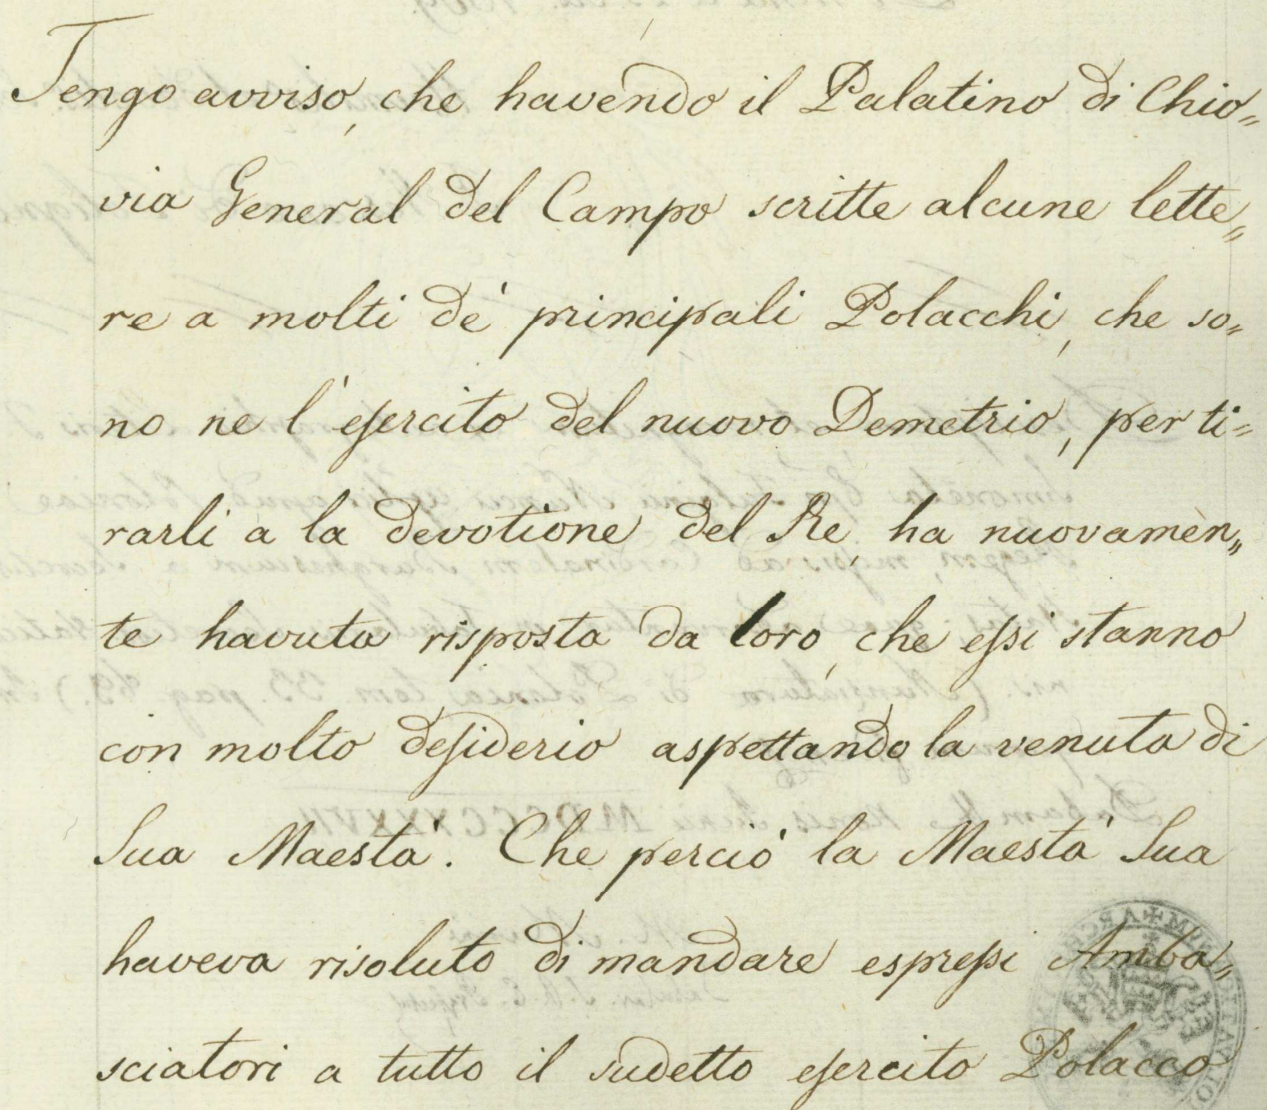 Tengo avviso, che havendo il Palatino di Chio„
via General del Campo scritte alcune lette„
re a molti de' principali Polacchi, che so„
no ne l'esercito del nuovo Demetrio, per ti„
rarli a la devotione del Re, ha nuovamen„
te havuta risposta da loro, che essi stanno
con molto desiderio aspettando la venuta di
Sua Maestà. Che perciò la Maestà Sua
haveva risoluto di mandare espressi Amba„
sciatori a tutto il sudetto esercito Polacco